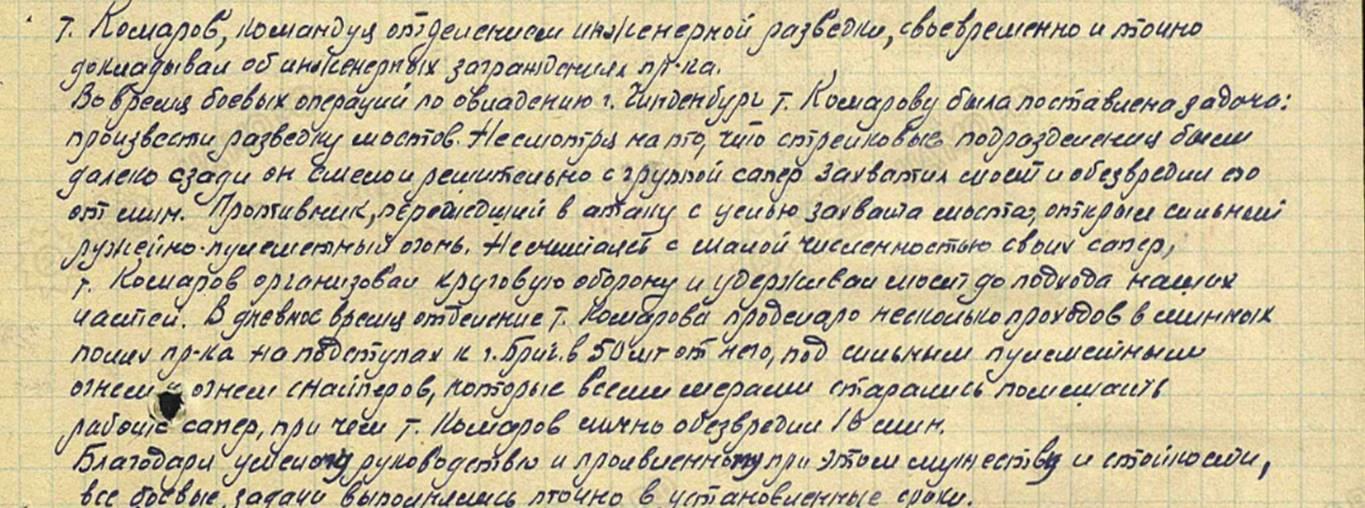 т. Комаров, командуя отделением инженерной разведки, своевременно и точно
докладывал об инженерных заграждениях пр-ка.
Во время боевых операций по овладению г. Гинденбург т. Комарову была поставлена задача:
произвести разведку мостов. Несмотря на то, что стрелковые подразделения были
далеко сзади он смело и решительно с группой сапер захватил мост и обезвредил его
от мин. Противник, перешедший в атаку с целью захвата моста, открыл сильный
ружейно-пулеметный огонь. Не считаясь с малой численностью своих сапер,
т. Комаров организовал круговую оборону и удерживал мост до подхода наших
частей. В дневное время отделение т. Комарова проделало несколько проходов в минных
полях пр-ка на подступах к г. Бриг. в 50 мт от него, под сильным пулеметным
огнем и огнем снайперов, которые всеми мерами старались помешать
работе сапер, при чем т. Комаров лично обезвредил 16 мин.
Благодаря умелому руководству и проявленному при этом мужеству и стойкости,
все боевые задачи выполнялись точно в установленные сроки.